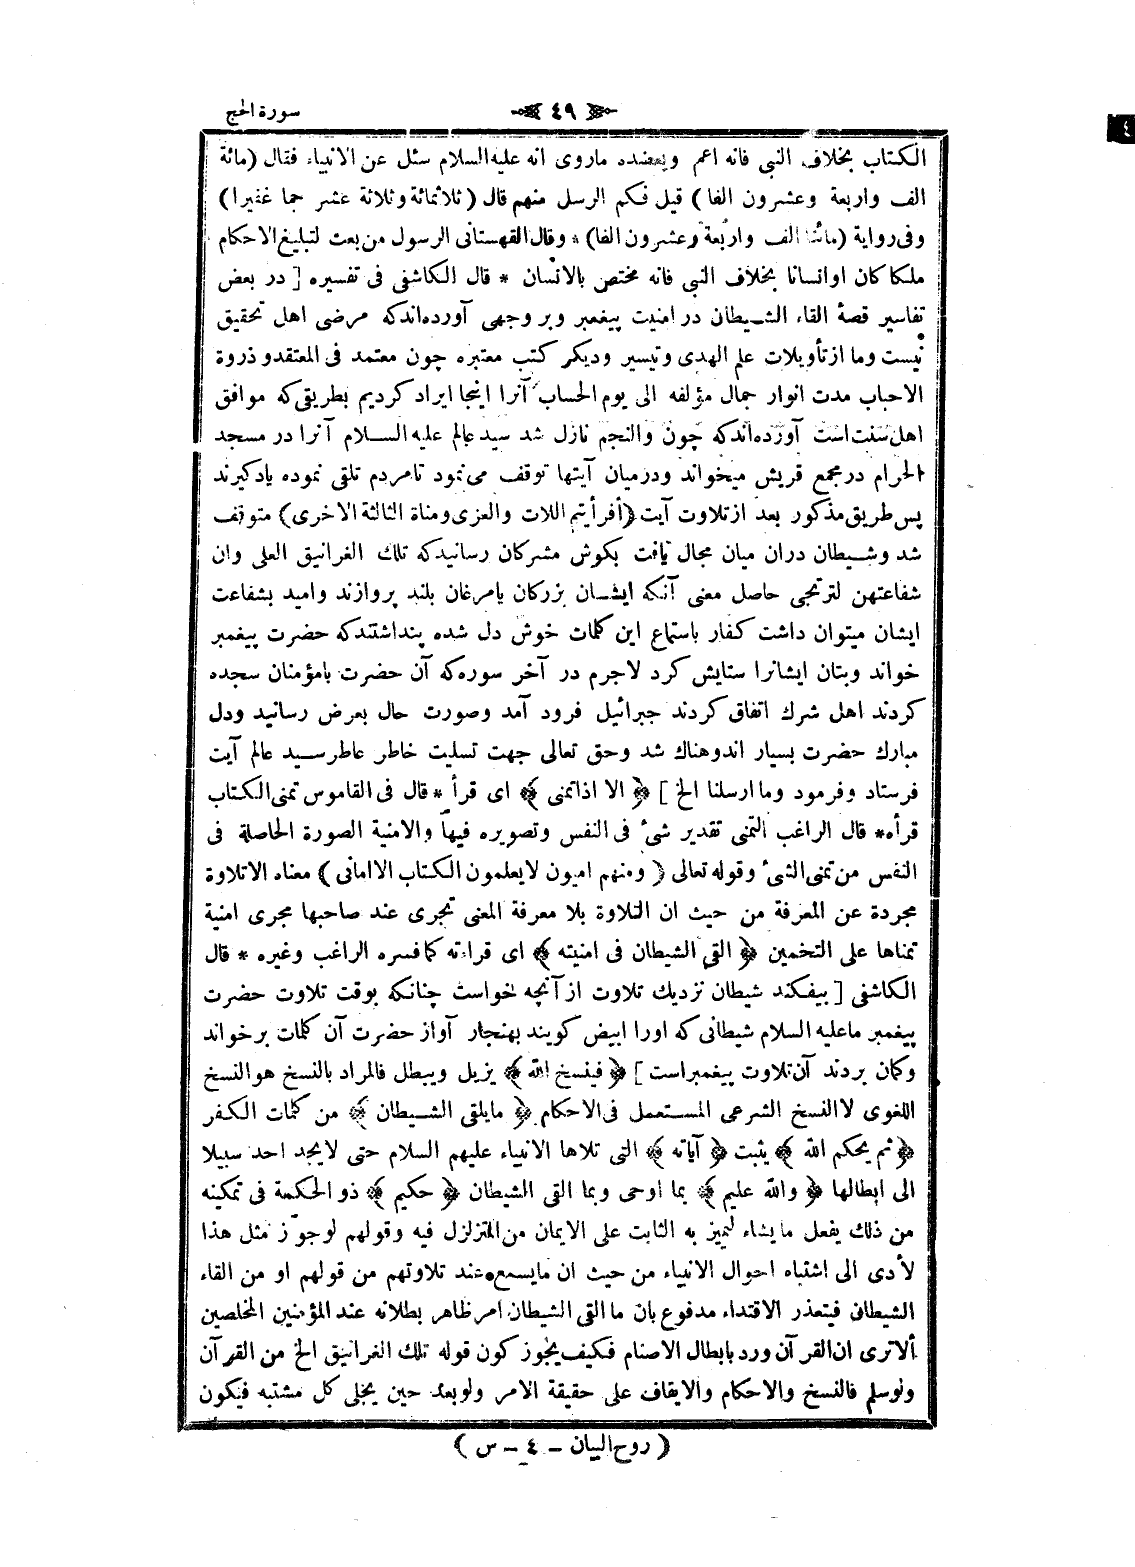 سورة الحج
٤٩
٤
الكتاب بخلاف النبى فانه اعم ويعضده ماروى انه عليه السلام سئل عن الانبياء فقال (مائة
الف واربعة وعشرون الفا) قيل فكم الرسل منهم قال (ثلاثمائة وثلاثة عشر جما غفيرا)
وفى رواية (مائتا الف واربعة وعشرون الفا) * وقال القهستانى الرسول من بعث لتبليغ الاحكام
ملكا كان او انسانا بخلاف النبى فانه مختص بالانسان * قال الكاشفى فى تفسيره [در بعض
تفاسير قصهٔ القاء الشيطان در امنيت پيغمبر وبر وجهى آورده‌اند كه مرضى اهل تحقيق
نيست وما از تأويلات علم الهدى وتيسير وديكر كتب معتبره چون معتمد فى المعتقد و ذروة
الاحباب مدت انوار جمال مؤلفه الى يوم الحساب آنرا اينجا ايراد كرديم بطريقى كه موافق
اهل سنت است آورده‌اند كه چون والنجم نازل شد سيد عالم عليه السلام آنرا در مسجد
الحرام در مجمع قريش ميخواند ودرميان آيتها توقف مى نمود تا مردم تلقى نموده ياد كيرند
پس طريق مذكور بعد از تلاوت آيت (أفرأيتم اللات والعزى ومناة الثالثة الاخرى) متوقف
شد وشيطان دران ميان مجال يافت بكوش مشركان رسانيد كه تلك الغرانيق العلى وان
شفاعتهن لترتجى حاصل معنى آنكه ايشان بزركان يا مرغان بلند پروازند واميد بشفاعت
ايشان ميتوان داشت كفار باستماع اين كلمات خوش دل شده پنداشتند كه حضرت پيغمبر
خواند وبتان ايشانرا ستايش كرد لاجرم در آخر سوره كه آن حضرت با مؤمنان سجده
كردند اهل شرك اتفاق كردند جبرائيل فرود آمد وصورت حال بعرض رسانيد ودل
مبارك حضرت بسيار اندوهناك شد وحق تعالى جهت تسليت خاطر عاطر سيد عالم آيت
فرستاد وفرمود وما ارسلنا الخ] ﴿الا اذا تمنى﴾ اى قرأ * قال فى القاموس تمنى الكتاب
قرأه * قال الراغب التمنى تقدير شئ فى النفس وتصويره فيها والامنية الصورة الحاصلة فى
النفس من تمنى الشئ وقوله تعالى (ومنهم اميون لا يعلمون الكتاب الا امانى) معناه الا تلاوة
مجردة عن المعرفة من حيث ان التلاوة بلا معرفة المعنى تجرى عند صاحبها مجرى امنية
تمناها على التخمين ﴿القى الشيطان فى امنيته﴾ اى قراءته كما فسره الراغب وغيره * قال
الكاشفى [بيفكند شيطان نزديك تلاوت از آنچه خواست چنانكه بوقت تلاوت حضرت
پيغمبر ما عليه السلام شيطانى كه اورا ابيض كويند بهنجار آواز حضرت آن كلمات برخواند
وكمان بردند آن تلاوت پيغمبراست] ﴿فينسخ الله﴾ يزيل ويبطل فالمراد بالنسخ هو النسخ
اللغوى لا النسخ الشرعى المستعمل فى الاحكام ﴿ما يلقى الشيطان﴾ من كلمات الكفر
﴿ثم يحكم الله﴾ يثبت ﴿آياته﴾ التى تلاها الانبياء عليهم السلام حتى لا يجد احد سبيلا
الى ابطالها ﴿والله عليم﴾ بما اوحى وبما القى الشيطان ﴿حكيم﴾ ذو الحكمة فى تمكينه
من ذلك يفعل ما يشاء ليميز به الثابت على الايمان من المتزلزل فيه وقولهم لوجوّز مثل هذا
لأدى الى اشتباه احوال الانبياء من حيث ان ما يسمع عند تلاوتهم من قولهم او من القاء
الشيطان فيتعذر الاقتداء مدفوع بان ما القى الشيطان امر ظاهر بطلانه عند المؤمنين المخلصين
ألا ترى ان القرآن ورد بابطال الاصنام فكيف يجوز كون قوله تلك الغرانيق الخ من القرآن
ولو سلم فالنسخ والاحكام والايقاف على حقيقة الامر ولو بعد حين يجلى كل مشتبه فيكون
(روح البيان ـ ٤ ـ س)